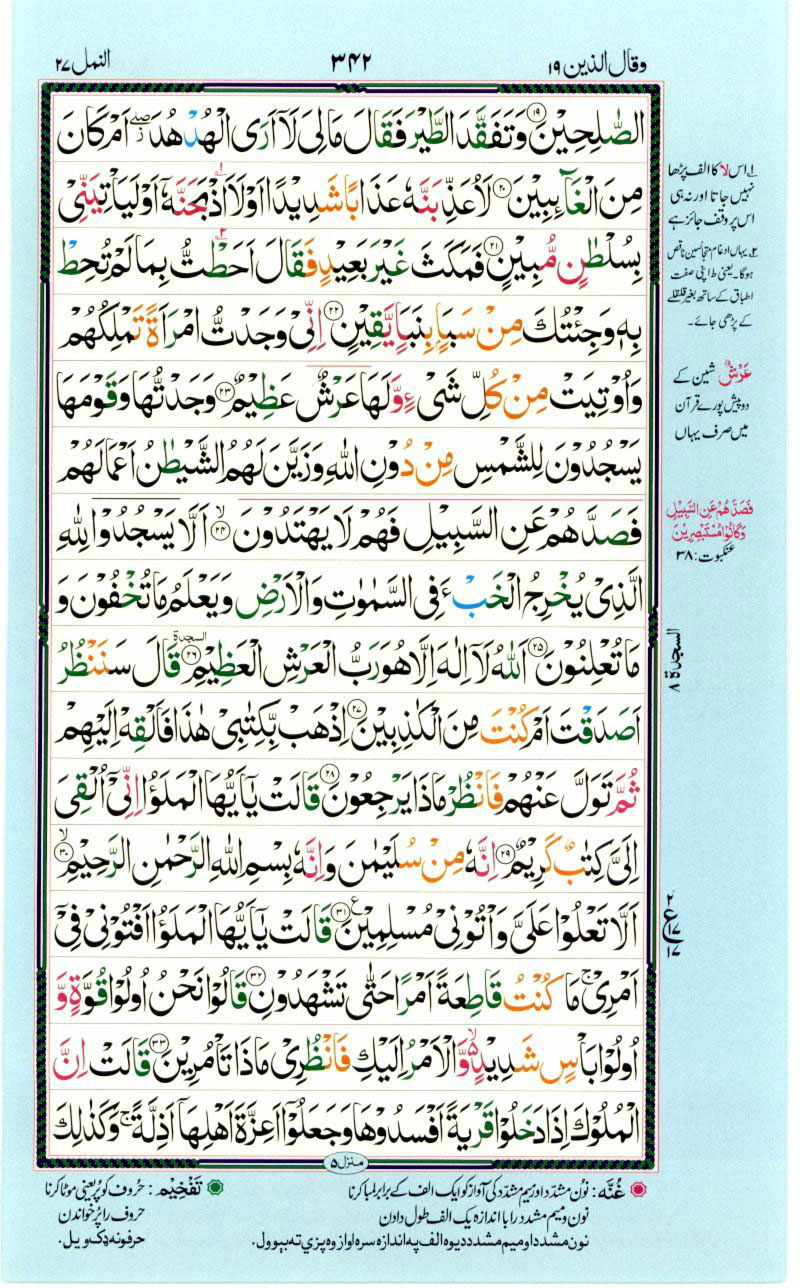 وقال الذین ۱۹
۳۴۲
النمل ۲۷
الصّٰلِحِیْنَ ۱۹ وَتَفَقَّدَ الطَّیْرَ فَقَالَ مَالِیَ لَاۤ اَرَی الْهُدْهُدَ ۖؗ اَمْ کَانَ
مِنَ الْغَآىِٕبِیْنَ ۲۰ لَاُعَذِّبَنَّهٗ عَذَابًا شَدِیْدًا اَوْ لَاَاذْبَحَنَّهٗۤ اَوْ لَیَاْتِیَنِّیْ
بِسُلْطٰنٍ مُّبِیْنٍ ۲۱ فَمَکَثَ غَیْرَ بَعِیْدٍ فَقَالَ اَحَطْتُّ بِمَا لَمْ تُحِطْ
بِهٖ وَجِئْتُكَ مِنْ سَبَاٍۭ بِنَبَاٍ یَّقِیْنٍ ۲۲ اِنِّیْ وَجَدْتُّ امْرَاَةً تَمْلِکُهُمْ
وَاُوْتِیَتْ مِنْ کُلِّ شَیْءٍ وَّلَهَا عَرْشٌ عَظِیْمٌ ۲۳ وَجَدْتُّهَا وَقَوْمَهَا
یَسْجُدُوْنَ لِلشَّمْسِ مِنْ دُوْنِ اللّٰهِ وَزَیَّنَ لَهُمُ الشَّیْطٰنُ اَعْمَالَهُمْ
فَصَدَّهُمْ عَنِ السَّبِیْلِ فَهُمْ لَا یَهْتَدُوْنَ ۙ ۲۴ اَلَّا یَسْجُدُوْا لِلّٰهِ
الَّذِیْ یُخْرِجُ الْخَبْءَ فِی السَّمٰوٰتِ وَالْاَرْضِ وَیَعْلَمُ مَا تُخْفُوْنَ وَ
مَا تُعْلِنُوْنَ ۲۵ اَللّٰهُ لَاۤ اِلٰهَ اِلَّا هُوَ رَبُّ الْعَرْشِ الْعَظِیْمِ ۲۶ السجدة قَالَ سَنَنْظُرُ
اَصَدَقْتَ اَمْ کُنْتَ مِنَ الْکٰذِبِیْنَ ۲۷ اِذْهَبْ بِّکِتٰبِیْ هٰذَا فَاَلْقِهْ اِلَیْهِمْ
ثُمَّ تَوَلَّ عَنْهُمْ فَانْظُرْ مَاذَا یَرْجِعُوْنَ ۲۸ قَالَتْ یٰۤاَیُّهَا الْمَلَؤُا اِنِّیْۤ اُلْقِیَ
اِلَیَّ کِتٰبٌ کَرِیْمٌ ۲۹ اِنَّهٗ مِنْ سُلَیْمٰنَ وَاِنَّهٗ بِسْمِ اللّٰهِ الرَّحْمٰنِ الرَّحِیْمِ ۙ ۳۰
اَلَّا تَعْلُوْا عَلَیَّ وَاْتُوْنِیْ مُسْلِمِیْنَ ۳۱ ع قَالَتْ یٰۤاَیُّهَا الْمَلَؤُا اَفْتُوْنِیْ فِیْۤ
اَمْرِیْ ۚ مَا کُنْتُ قَاطِعَةً اَمْرًا حَتّٰی تَشْهَدُوْنِ ۳۲ قَالُوْا نَحْنُ اُولُوْا قُوَّةٍ وَّ
اُولُوْا بَاْسٍ شَدِیْدٍ ۙ۬ وَّالْاَمْرُ اِلَیْكِ فَانْظُرِیْ مَاذَا تَاْمُرِیْنَ ۳۳ قَالَتْ اِنَّ
الْمُلُوْكَ اِذَا دَخَلُوْا قَرْیَةً اَفْسَدُوْهَا وَجَعَلُوْۤا اَعِزَّةَ اَهْلِهَاۤ اَذِلَّةً ۚ وَکَذٰلِكَ
منزل ۵
۱۔ اس لا کا الف پڑھا
نہیں جاتا اور نہ ہی
اس پر وقف جائز ہے
۲۔ یہاں ادغام متجانسین ناقص
ہوگا۔ یعنی ط اپنی صفت
اطباق کے ساتھ بغیر قلقلے
کے پڑھی جائے۔
عَرْشٌ شین کے
دو پیش پورے قرآن
میں صرف یہاں
فَصَدَّهُمْ عَنِ السَّبِیْلِ
وَکَانُوْا مُسْتَبْصِرِیْنَ
عنکبوت: ۳۸
السجدة ۸
۲
ع
۱۷
۱۷
غُنَّه: نون مشدّد اور میم مشدّد کی آواز کو ایک الف کے برابر لمبا کرنا
نون و میم مشدد را با اندازه یک الف طول دادن
نون مشدد او میم مشدد د یوه الف په اندازه سره اواز وه پزې ته بیوول.
تَفْخِیْم: حروف کو پُر یعنی موٹا کرنا
حروف را پُر خواندن
حرفونه ډک ویل.